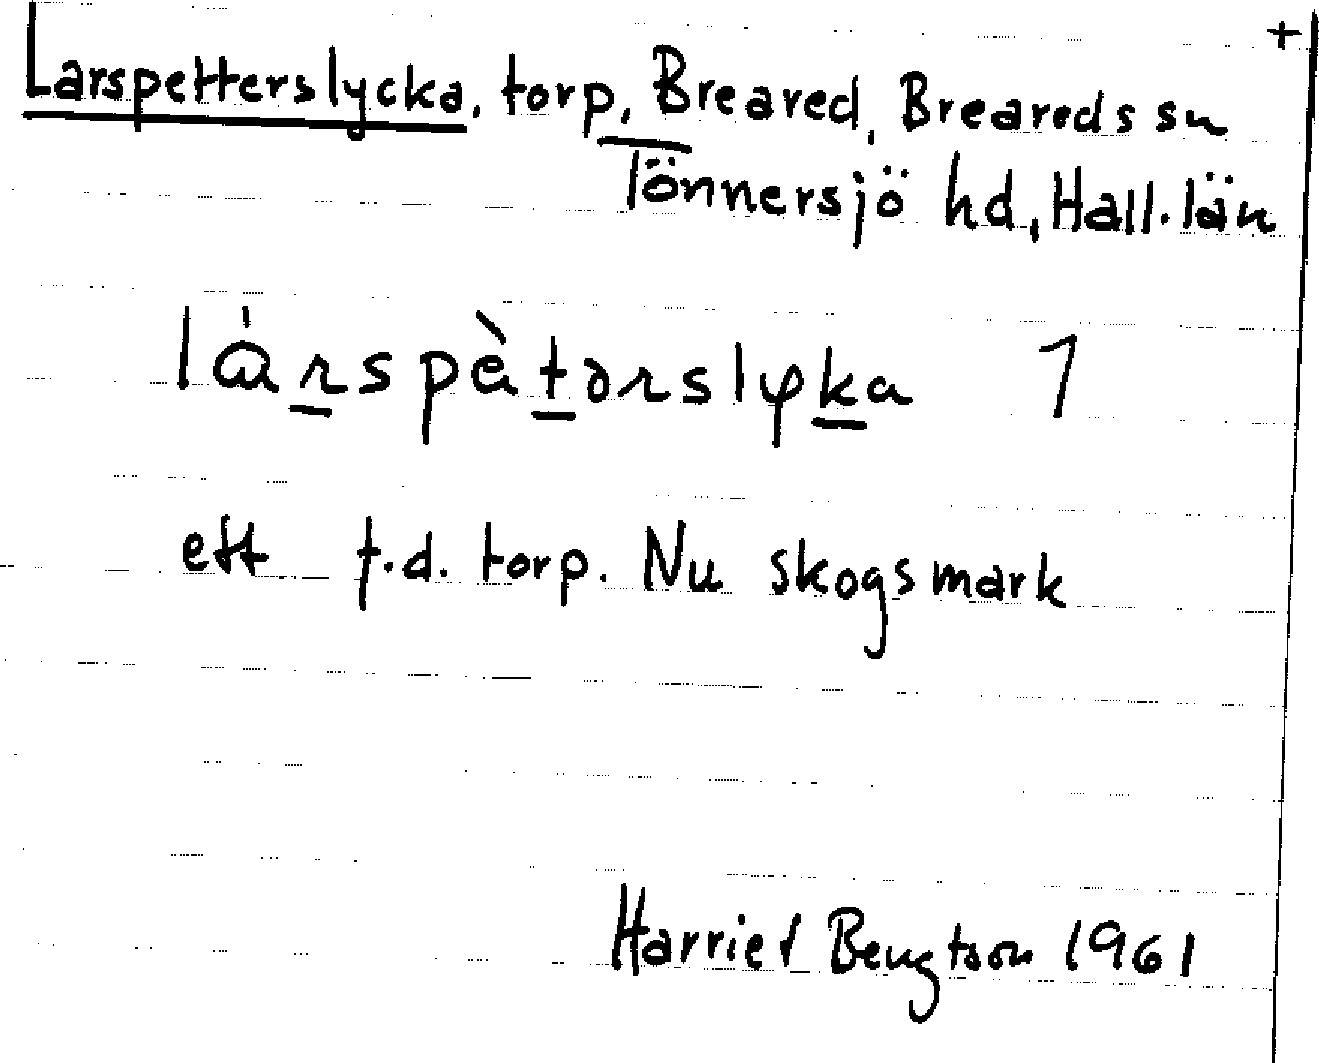 +
Larspetterslycka, torp, Breared, Breareds sn
Tönnersjö hd, Hall. län
lárspètərslyka 1
ett f.d. torp. Nu skogsmark
Harriet Bengtson 1961